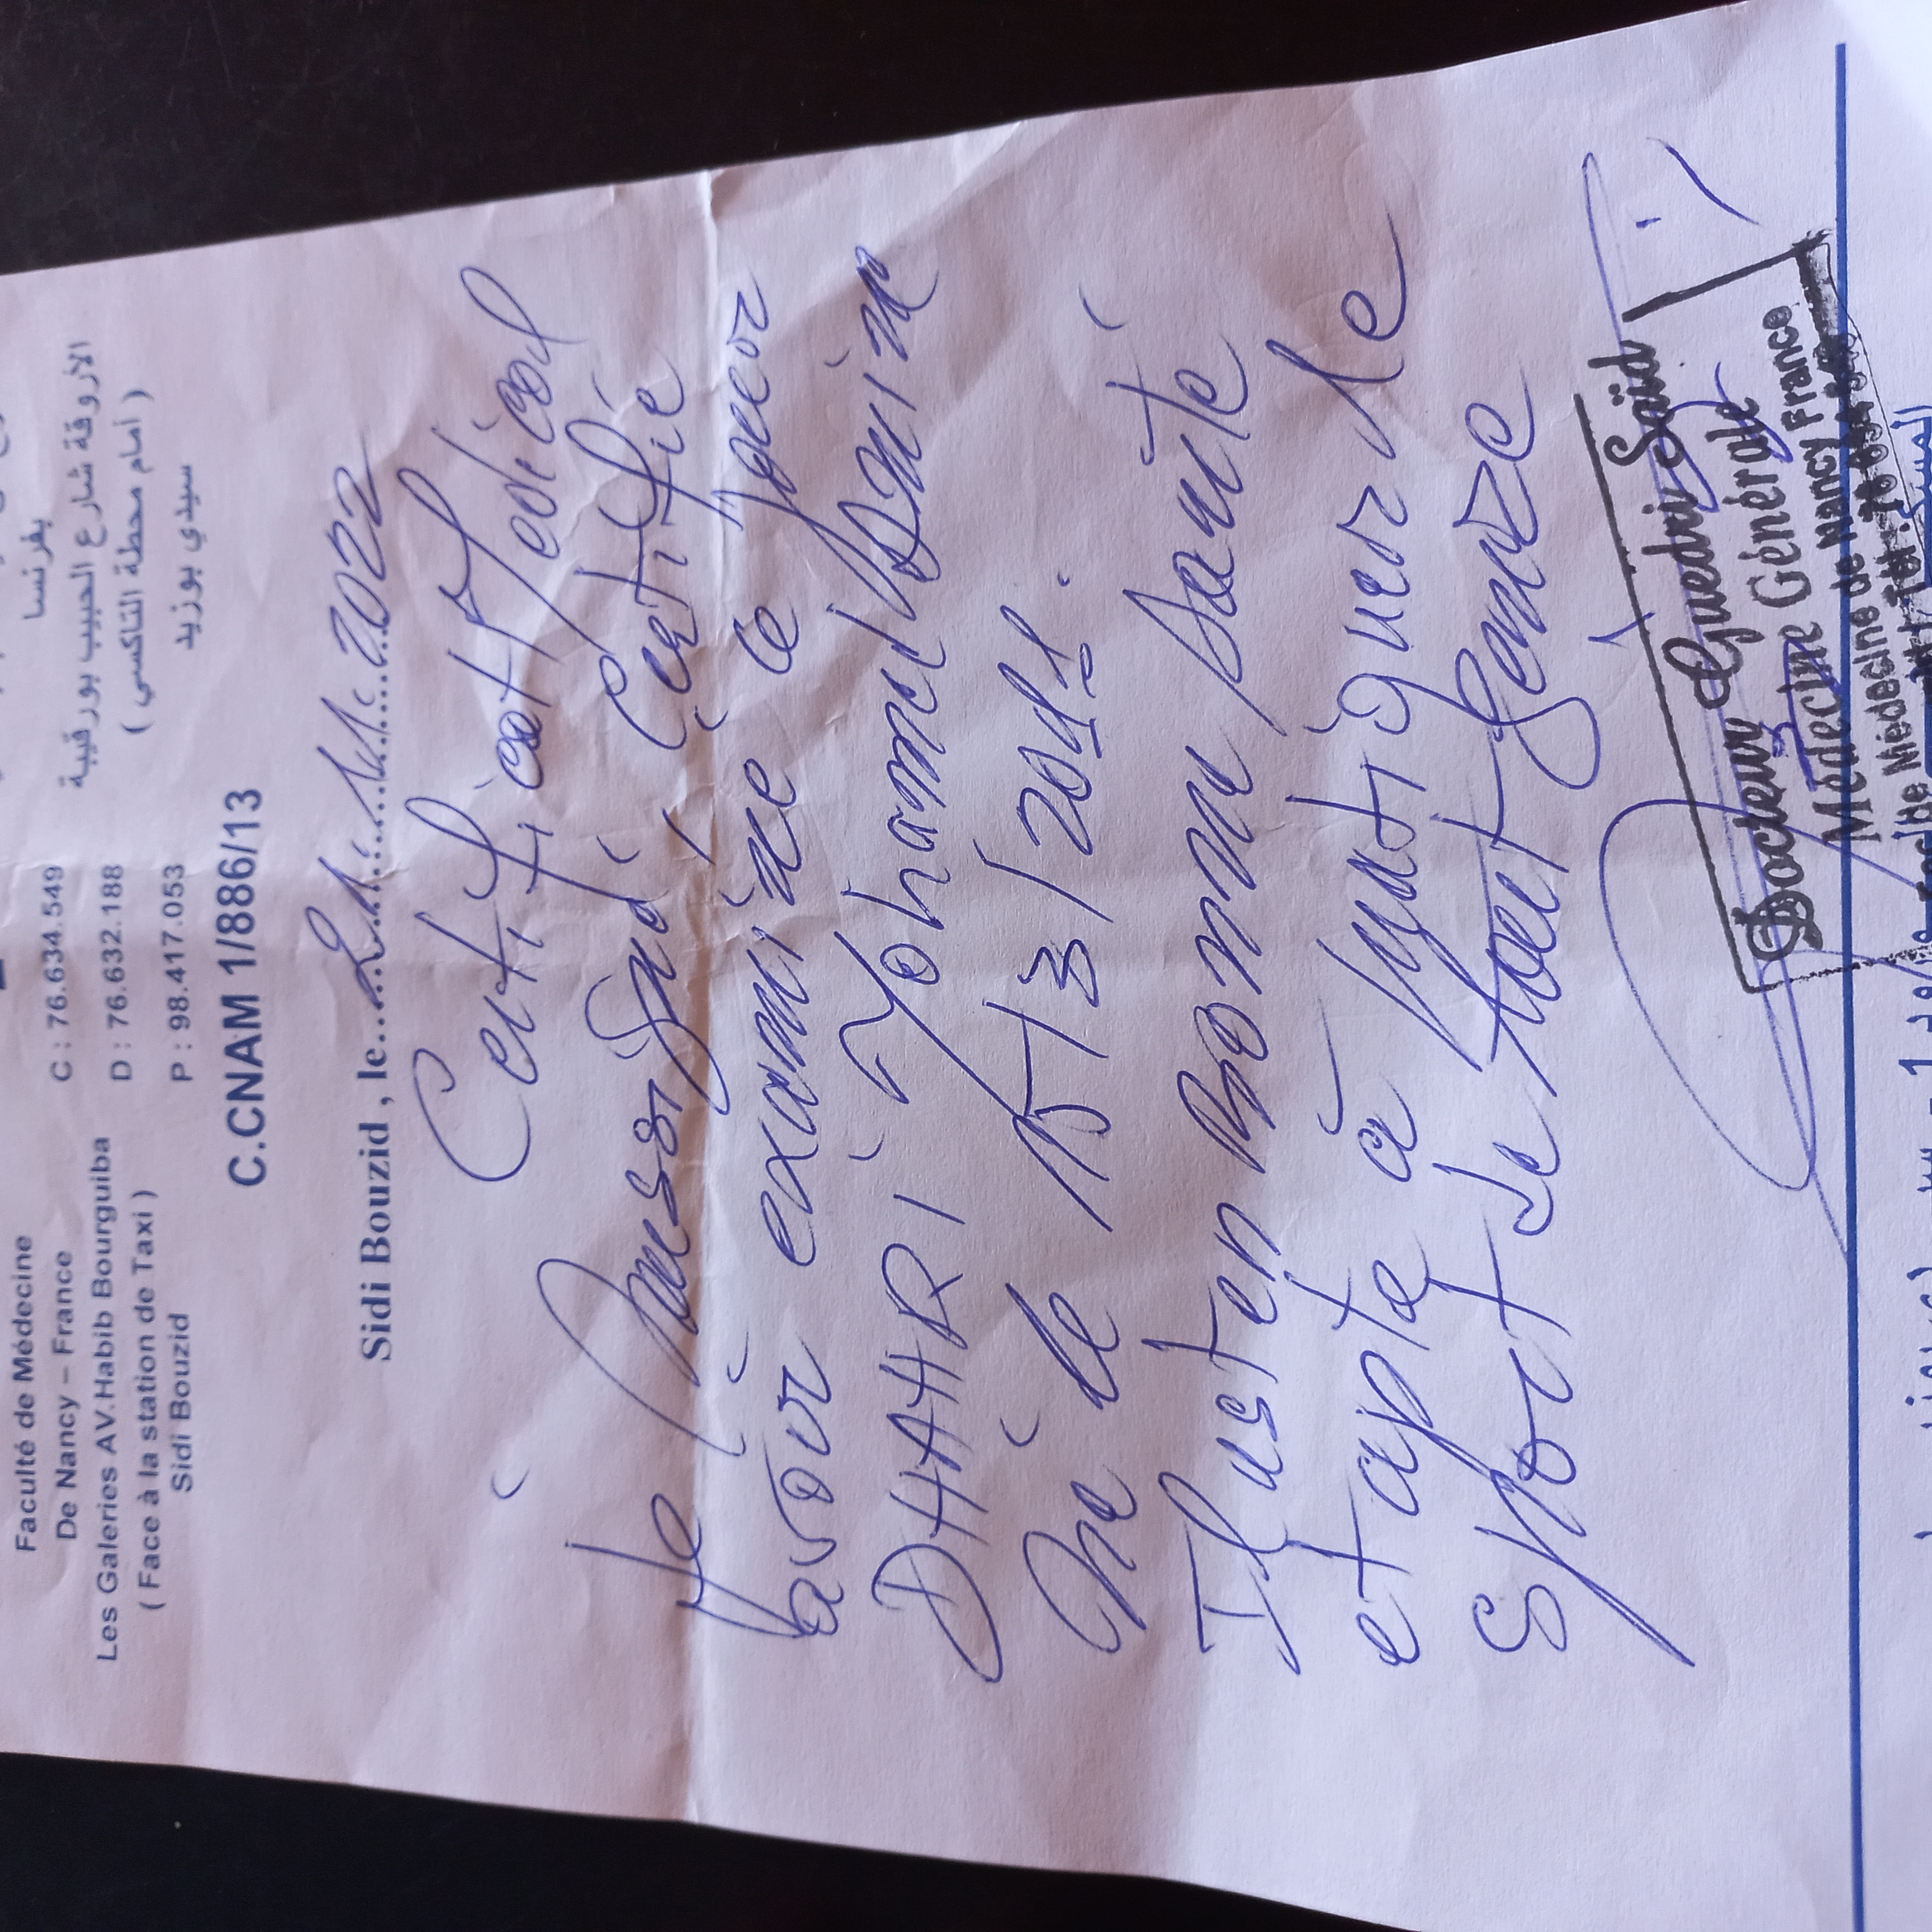 Faculté de Médecine
De Nancy – France
Les Galeries AV.Habib Bourguiba
( Face à la station de Taxi )
Sidi Bouzid
C : 76.634.549
D : 76.632.188
P : 98.417.053
بفرنسا
الأروقة شارع الحبيب بورقيبة
( أمام محطة التاكسي )
سيدي بوزيد
C.CNAM 1/886/13
Sidi Bouzid , le 2022
Certificat Médical
Je Soussigné Certifié
avoir examiné le
DHAHRI Mohamed
Né le 15/3/2011.
Il est en bonne santé
et apte à pratiquer le
sport de
Docteur Guedri Saïd
Médecine Générale
Médecine de Nancy France